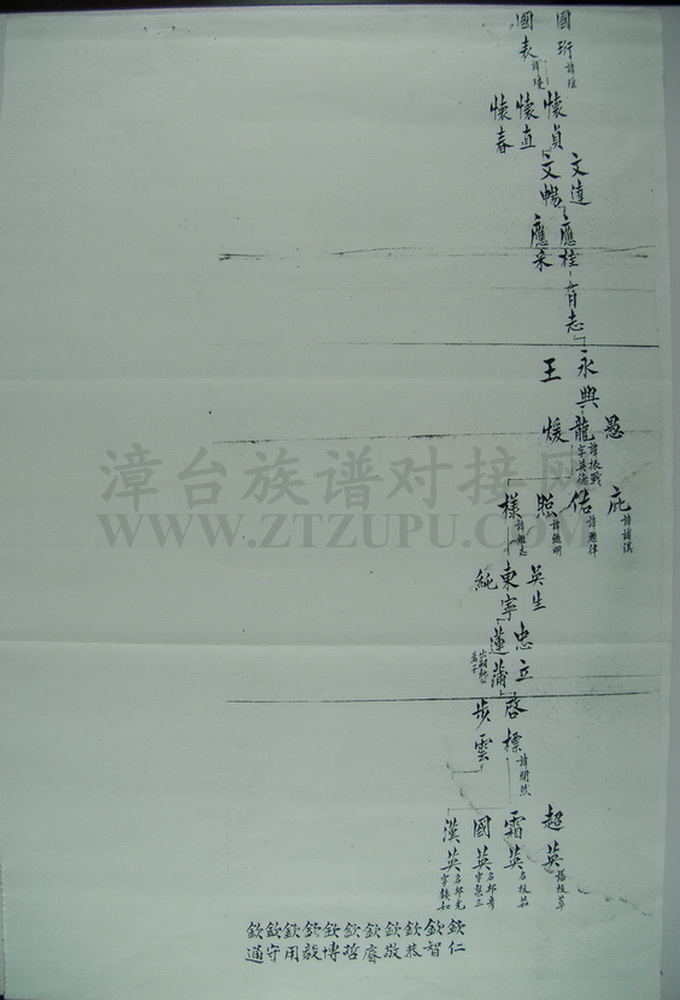 國珩 諱瑤
國表 諱璦
懷貞
懷直
懷春
文達
文暢
應桂
應采
有志
永興
王
愚
龍 諱振戰 字英德
煖
庇
佑 諱懋律
照 諱懋明
樣 諱懋志
英生
東寧
純
忠立
蓮蒲
啓標 諱開然
步雲
超英
霜英
國英
漢英
欽仁
欽智
欽恭
欽敬
欽睿
欽哲
欽博
欽毅
欽用
欽守
欽通
漳台族谱对接网
WWW.ZTZUPU.COM